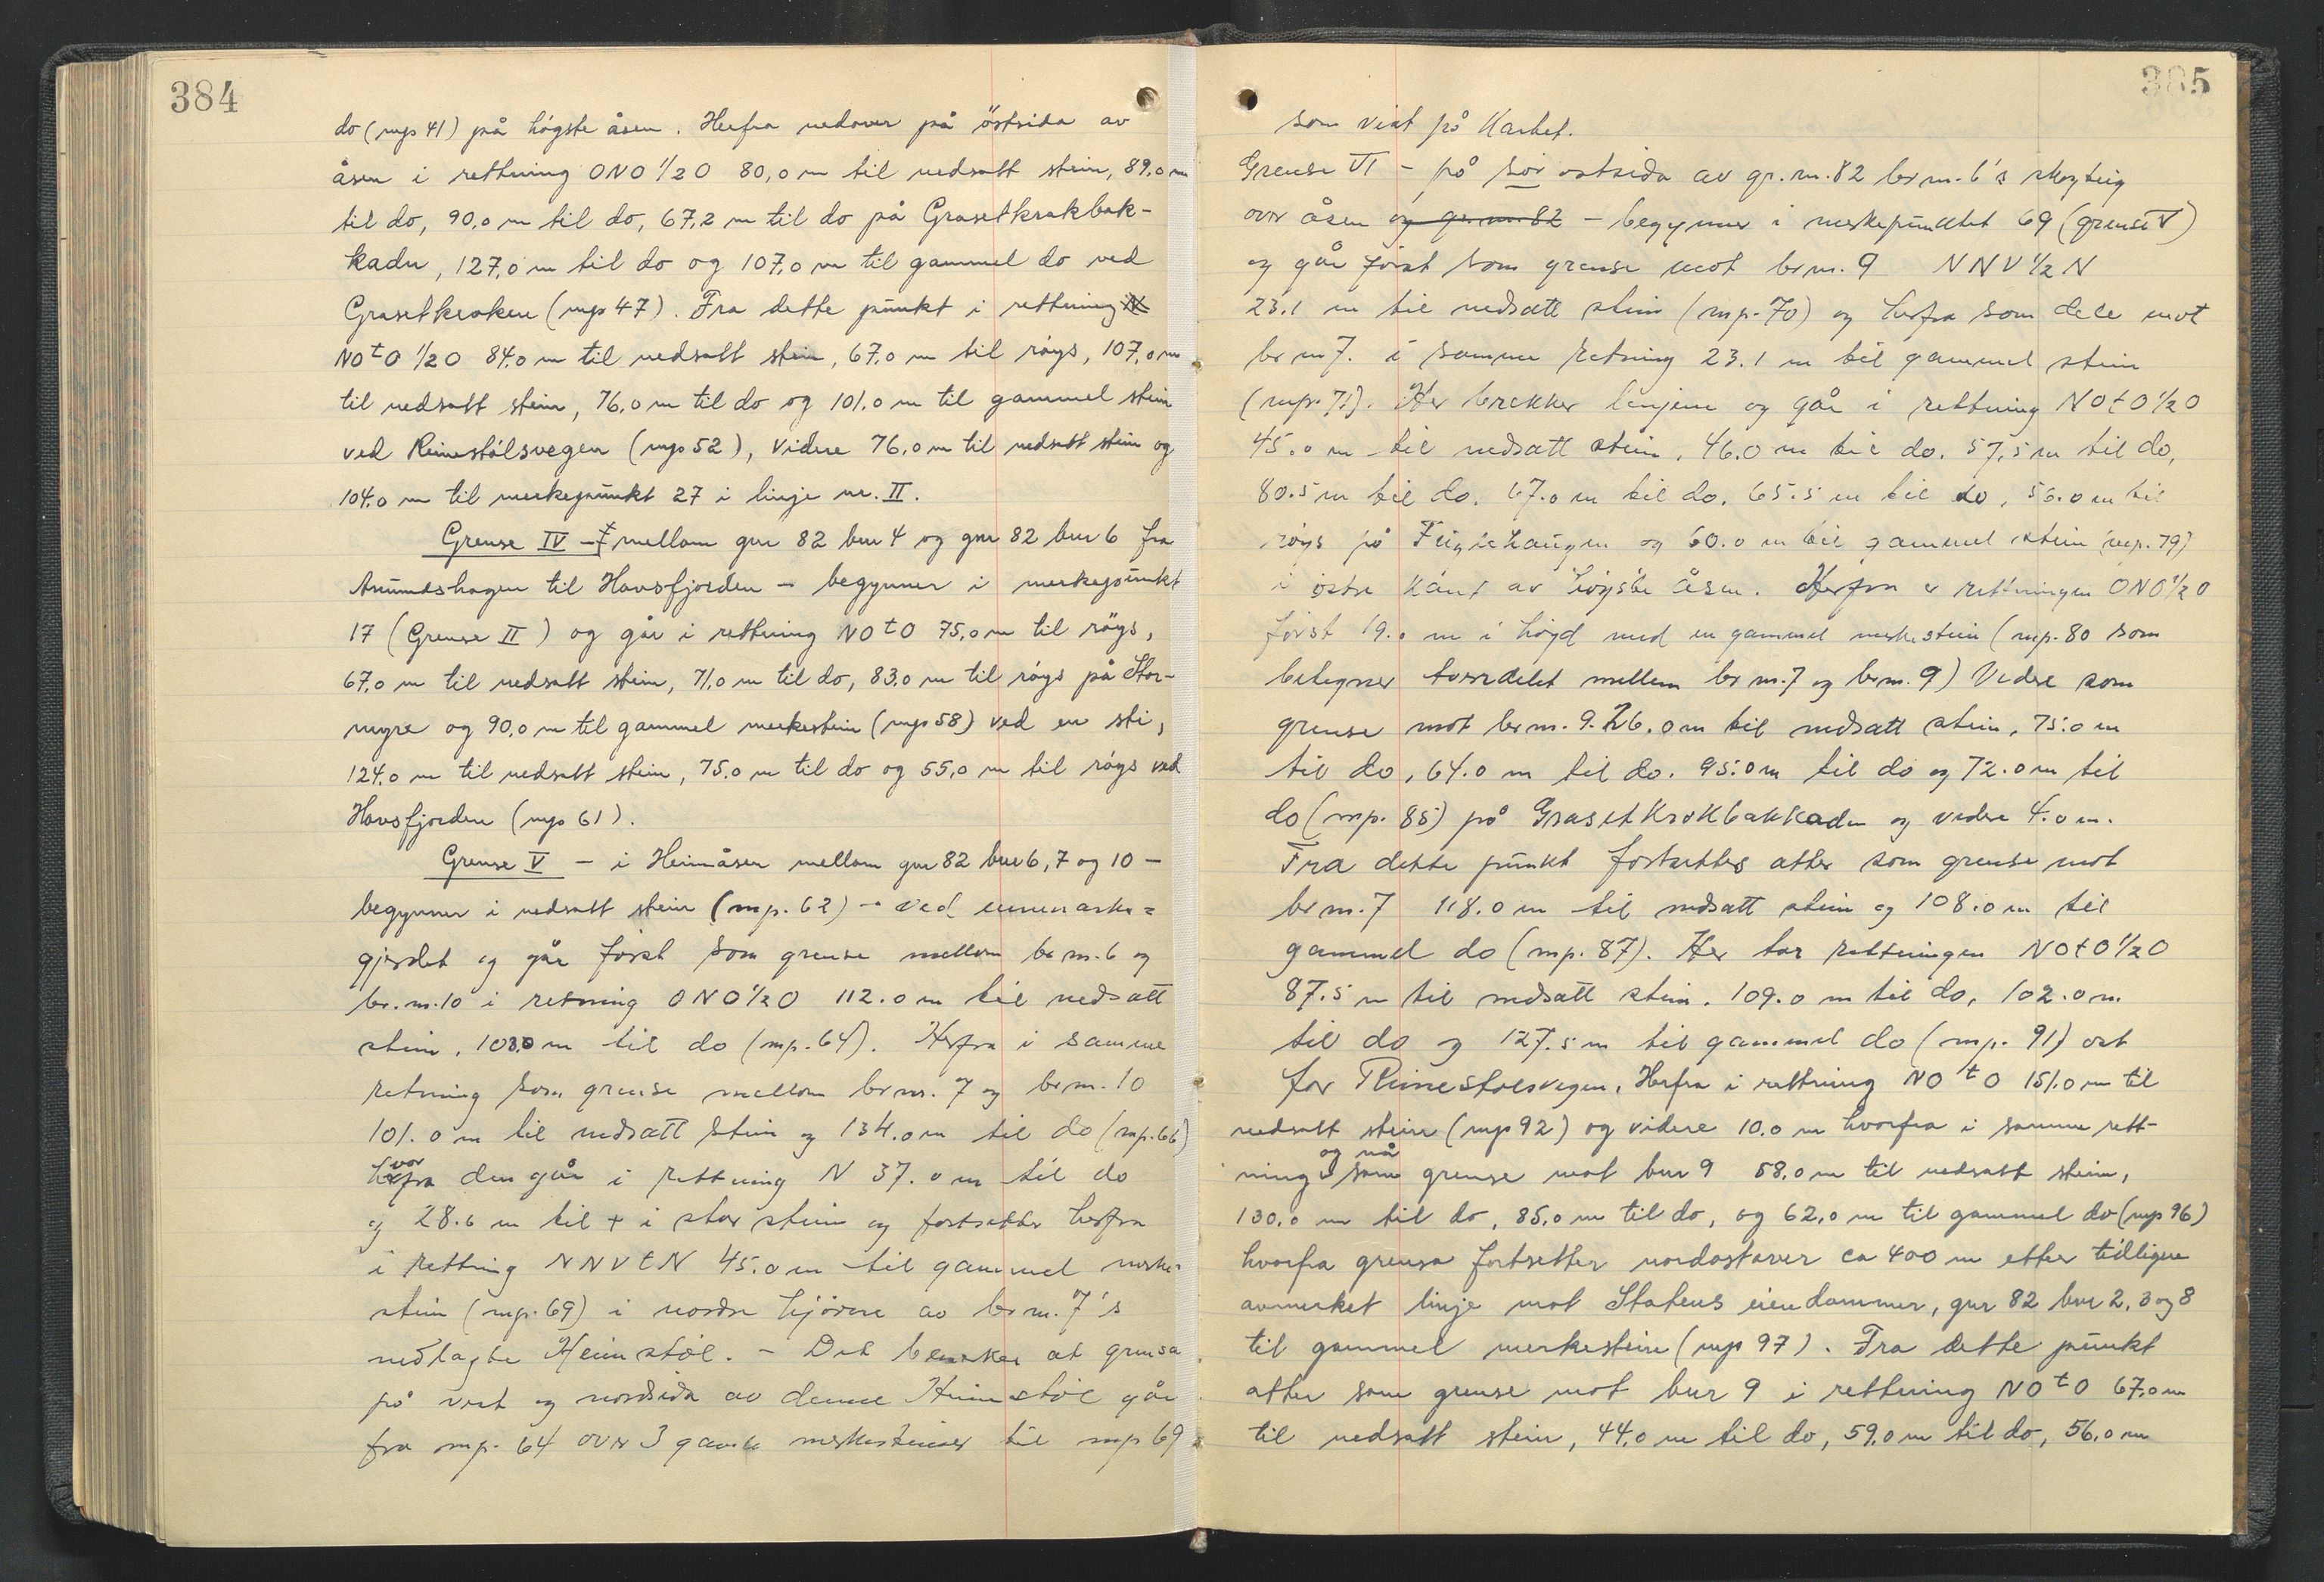 384
do (mp 41) på högste åsen. Herfra nedover på östsida av
åsen i rettning ONO 1/2 O 80,0 m til nedsatt stein, 89,0 m
til do, 90,0 m til do, 67,2 m til do på Grasetkrokbak-
kadn, 127,0 m til do og 107,0 m til gammel do ved
Grasetkroken (mp 47). Fra dette punkt i rettning
NOtO 1/2 O 84,0 m til nedsatt stein, 67,0 m til röys, 107,0 m
til nedsatt stein, 76,0 m til do og 101,0 m til gammel stein
ved Reinestölsvegen (mp 52), videre 76,0 m til nedsatt stein og
104,0 m til merkepunkt 27 i linje nr. II.
Grense IV – mellom gnr 82 bnr 4 og gnr 82 bnr 6 fra
Anundshagen til Havsfjorden – begynner i merkepunkt
17 (Grense II) og går i rettning NOtO 75,0 m til röys,
67,0 m til nedsatt stein, 71,0 m til do, 83,0 m til röys på Stor-
myre og 90,0 m til gammel merkestein (mp 58) ved en sti,
124,0 m til nedsatt stein, 75,0 m til do og 55,0 m til röys ved
Havsfjorden (mp 61).
Grense V – i Heimåsen mellom gnr 82 bnr 6, 7 og 10 –
begynner i nedsatt stein (mp. 62) – ved innmarks=
gjerdet og går först som grense mellom br.nr. 6 og
br.nr. 10 i retning ONO 1/2 O 112.0 m til nedsatt
stein, 103.0 m til do (mp. 64). Herfra i samme
retning som grense mellom br.nr. 7 og br.nr. 10
101.0 m til nedsatt stein og 134.0 m til do (mp. 66)
hvorfra den går i rettning N 37.0 m til do
og 28.6 m til + i stor stein og fortsetter herfra
i rettning NNVtN 45.0 m til gammel merke-
stein (mp. 69) i nordre hjörne av br.nr. 7's
nedlagte Heimstöl. – Det bemerkes at grensa
på vest og nordsida av denne Heimstöl går
fra mp. 64 over 3 gamle merkesteiner til mp 69
385
som vist på Kartet.
Grense VI – på sör ostsida av gr.nr. 82 br.nr. 6's skogteig
over åsen og gr.nr. 82 – begynner i merkepunktet 69 (grense V)
og går först som grense mot br.nr. 9 NNV 1/2 N
23.1 m til nedsatt stein (mp. 70) og herfra som dele mot
br.nr 7. i samme retning 23.1 m til gammel stein
(mp. 71). Her brekker linjene og går i rettning NOtO 1/2 O
45.0 m til nedsatt stein, 46.0 m til do. 57,5 m til do,
80.5 m til do. 67.0 m til do. 65.5 m til do, 56.0 m til
röys på og 60.0 m til gammel stein (mp. 79)
i östre kant av högste åsen. Herfra er rettningen ONO 1/2 O
först 19.0 m i höyd med en gammel merkestein (mp. 80 som
betegner tverrdelet mellem br.nr. 7 og br.nr. 9) Videre som
grense mot br.nr. 9. 26.0 m til nedsatt stein, 75.0 m
til do, 64.0 m til do. 95.0 m til do og 72.0 m til
do (mp. 85) på Grasetkrokbakkadn og videre 4.0 m.
Fra dette punkt fortsettes atter som grense mot
br.nr. 7 118.0 m til nedsatt stein og 108.0 m til
gammel do (mp. 87). Her tar rettningen NOtO 1/2 O
87.5 m til nedsatt stein. 109.0 m til do, 102.0 m
til do og 127.5 m til gammel do (mp. 91) ost
for Reinestölsvegen. Herfra i rettning NOtO 151.0 m til
nedsatt stein (mp 92) og videre 10.0 m hvorfra i samme rett-
ning og nå som grense mot bnr 9 58.0 m til nedsatt stein,
130,0 m til do, 85,0 m til do, og 62,0 m til gammel do (mp 96)
hvorfra grensa fortsetter nordostover ca 400 m etter tidligere
avmerket linje mot Statens eiendommer, gnr 82 bnr 2, 3 og 8
til gammel merkestein (mp 97). Fra dette punkt
atter som grense mot bnr 9 i rettning NOtO 67,0 m
til nedsatt stein, 44,0 m til do, 59,0 m til do, 56,0 m